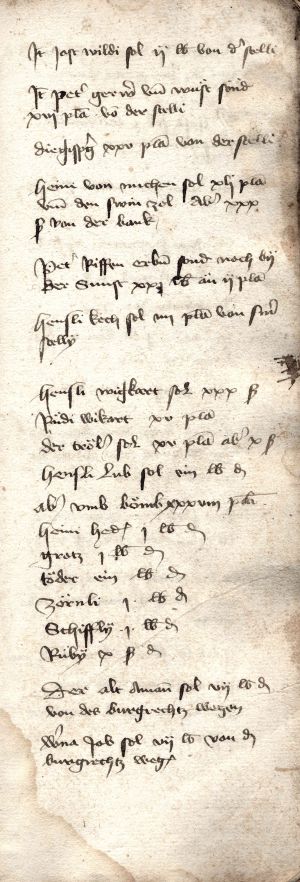 Jt Jost wildi sol ij lb von d' stelli
Jt Pet' vnd sond
xvj pla vo der stelli
xxv pla von der stelli
heini von sol xlj pla
vm den swin zol ab' xxx
ß von der bank
Pet' Riffen erbn sond noch by
der xxj lb an ij pla
hensli kech sol iiij pla von sinr
stelly
hensli wigkart sol xxx ß
Rudi wikart xv pla
der sol xv pla ab' x ß
hensli sol ein lb d
ab' vmb bömb xxxviij pla
heini hed j lb d
gretz j lb d
töder ein lb d
zörnli j lb d
Schiffly j lb d
Ruby x ß d
Der alt Aman sol vij lb d
von des burgrechtz wegen
Job sol vij lb von d
burgrechtz weg